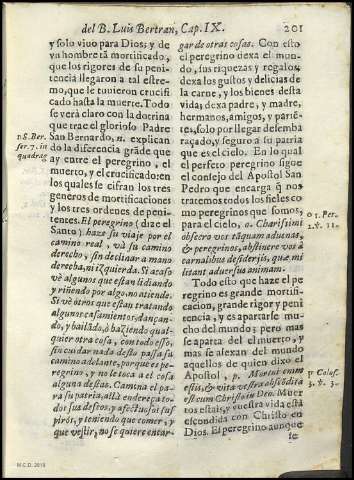 del B. Luis Bertran, Cap. IX.
201
y solo viuo para Dios: y de
vn hombre tã mortificado,
que los rigores de su peni-
tencia llegaron a tal estre-
mo, que le tuuieron crucifi-
cado hasta la muerte. Todo
se verà claro con la dotrina
que trae el glorioso Padre
San Bernardo, n. explican
do la diferencia grãde que
ay entre el peregrino, el
muerto, y el crucificado: en
los quales se cifran los tres
generos de mortificaciones
y los tres ordenes de peni-
tentes. El peregrino (dize el
Santo) haze su viaje por el
camino real, và su camino
derecho, sin declinar a mano
derecha, ni izquierda. Si acaso
vè algunos que estan lidiando
y riñendo por algo, no atiende.
Si vè otros que estan tratando
algunos casamientos, dançan
do, y bailãdo, ò haziendo qual-
quier otra cosa, con todo esso,
sin cuidar nada desto passa su
camino adelante, porque es pe-
regrino, y no le toca el cosa
alguna destas. Camina el pa-
ra su patria, allà endereça to-
dos sus
y teniendo que comer, y
que vestir, no se quiere entar-
n S. Ber.
ser. 7. in
quadrag.
gar de otras cosas. Con esto
el peregrino dexa el mun-
do, sus riquezas y regalos,
dexa los gustos y delicias de
la carne, y los bienes desta
vida; dexa padre, y madre,
hermanos, amigos, y pariẽ-
tes, solo por llegar desemba
raçado, y seguro a su patria
que es el cielo. En lo qual
el perfeto peregrino sigue
el consejo del Apostol San
Pedro que encarga q̃ nos
tratemos todos los fieles co
mo peregrinos que somos,
para el cielo, o. Charissimi
obsecro vos tãquam aduenas,
& peregrinos, abstinere vos à
carnalibus desiderijs, quæ mi
litant aduersus animam.
Todo esto que haze el pe
regrino es grande mortifi-
cacion, grande rigor y peni
tencia, y es apartarse mu-
cho del mundo; pero mas
se aparta del el muerto, y
mas se alexan del mundo
aquellos de quien dixo el
Apostol, p. Mortui enim
estis, & vita vestra abscõdita
est cum Christo in Deo. Muer
tos estais, y vuestra vida està
escondida con Christo en
Dios. El peregrino aunque
se
o 1. Per.
2. v. 11.
p Colos.
3. v. 3.
M.C.D. 2019